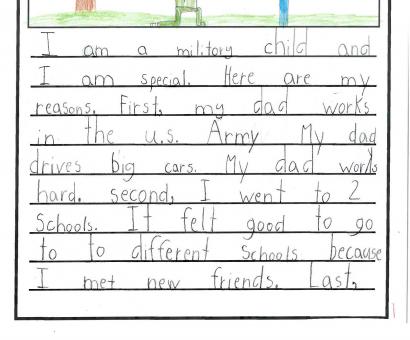 I am a military child and
I am special. Here are my
reasons. First, my dad works
in the u.s. Army My dad
drives big cars. My dad works
hard. second, I went to 2
Schools. It felt good to go
to to different Schools because
I met new friends. Last,